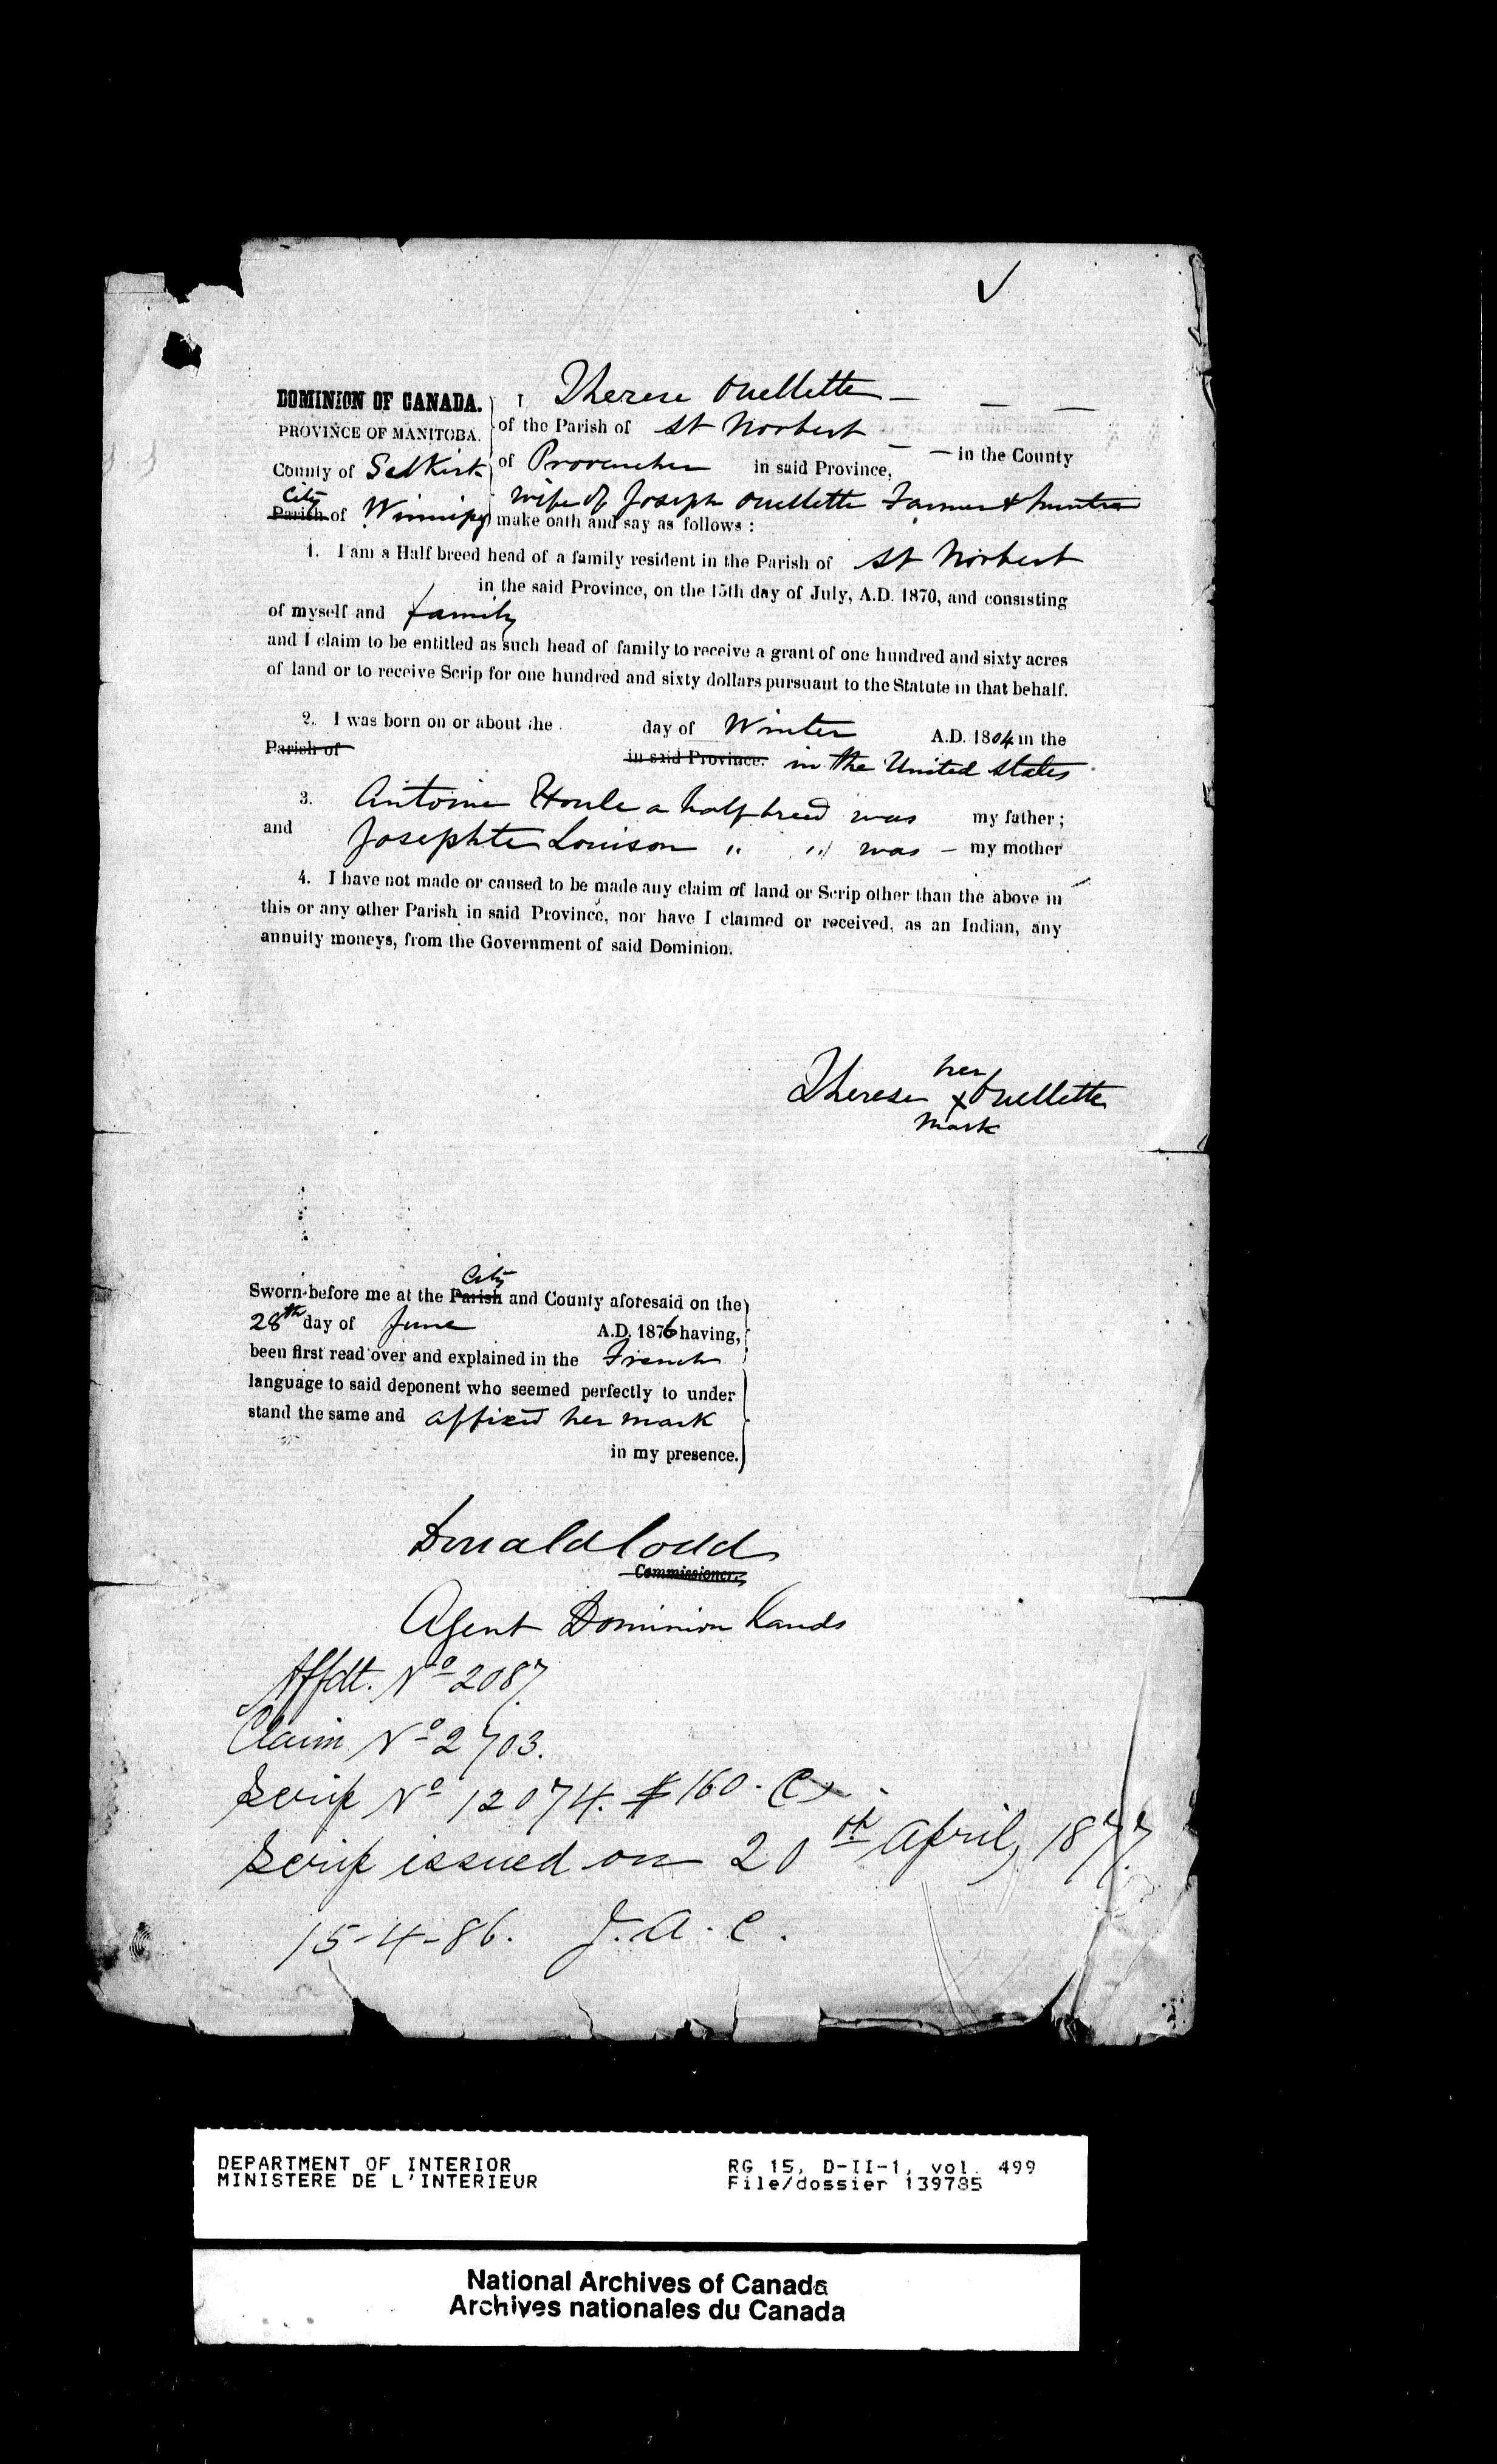 DOMINION OF CANADA.
PROVINCE OF MANITOBA.
County of Selkirk
City
Parish of Winnipeg
I Therese Ouellette
of the Parish of St Norbert in the County
of Provencher in said Province,
wife of Joseph Ouellette Farmer & hunter
make oath and say as follows :
1. I am a Half breed head of a family resident in the Parish of St Norbert
in the said Province, on the 15th day of July, A.D. 1870, and consisting
of myself and family
and I claim to be entitled as such head of family to receive a grant of one hundred and sixty acres
of land or to receive Scrip for one hundred and sixty dollars pursuant to the Statute in that behalf.
2. I was born on or about the day of Winter A.D. 1804 in the
Parish of in said Province. in the United States
3. Antoine Houle a half breed was my father ;
and Josephte Louison " " was - my mother
4. I have not made or caused to be made any claim of land or Scrip other than the above in
this or any other Parish in said Province, nor have I claimed or received, as an Indian, any
annuity moneys, from the Government of said Dominion.
her
Therese x Ouellette
mark
City
Sworn before me at the Parish and County aforesaid on the
28th day of June A.D. 1876 having,
been first read over and explained in the French
language to said deponent who seemed perfectly to under
stand the same and affixed her mark
in my presence.
Donald Codd
Commissioner.
Agent Dominion Lands
Affdt. No 2087.
Claim No 2703.
Scrip No 12074. $160.
Scrip issued on 20th April, 1877.
15-4-86. J.A.C.
DEPARTMENT OF INTERIOR RG 15, D-II-1, vol. 499
MINISTERE DE L'INTERIEUR File/dossier 139785
National Archives of Canada
Archives nationales du Canada